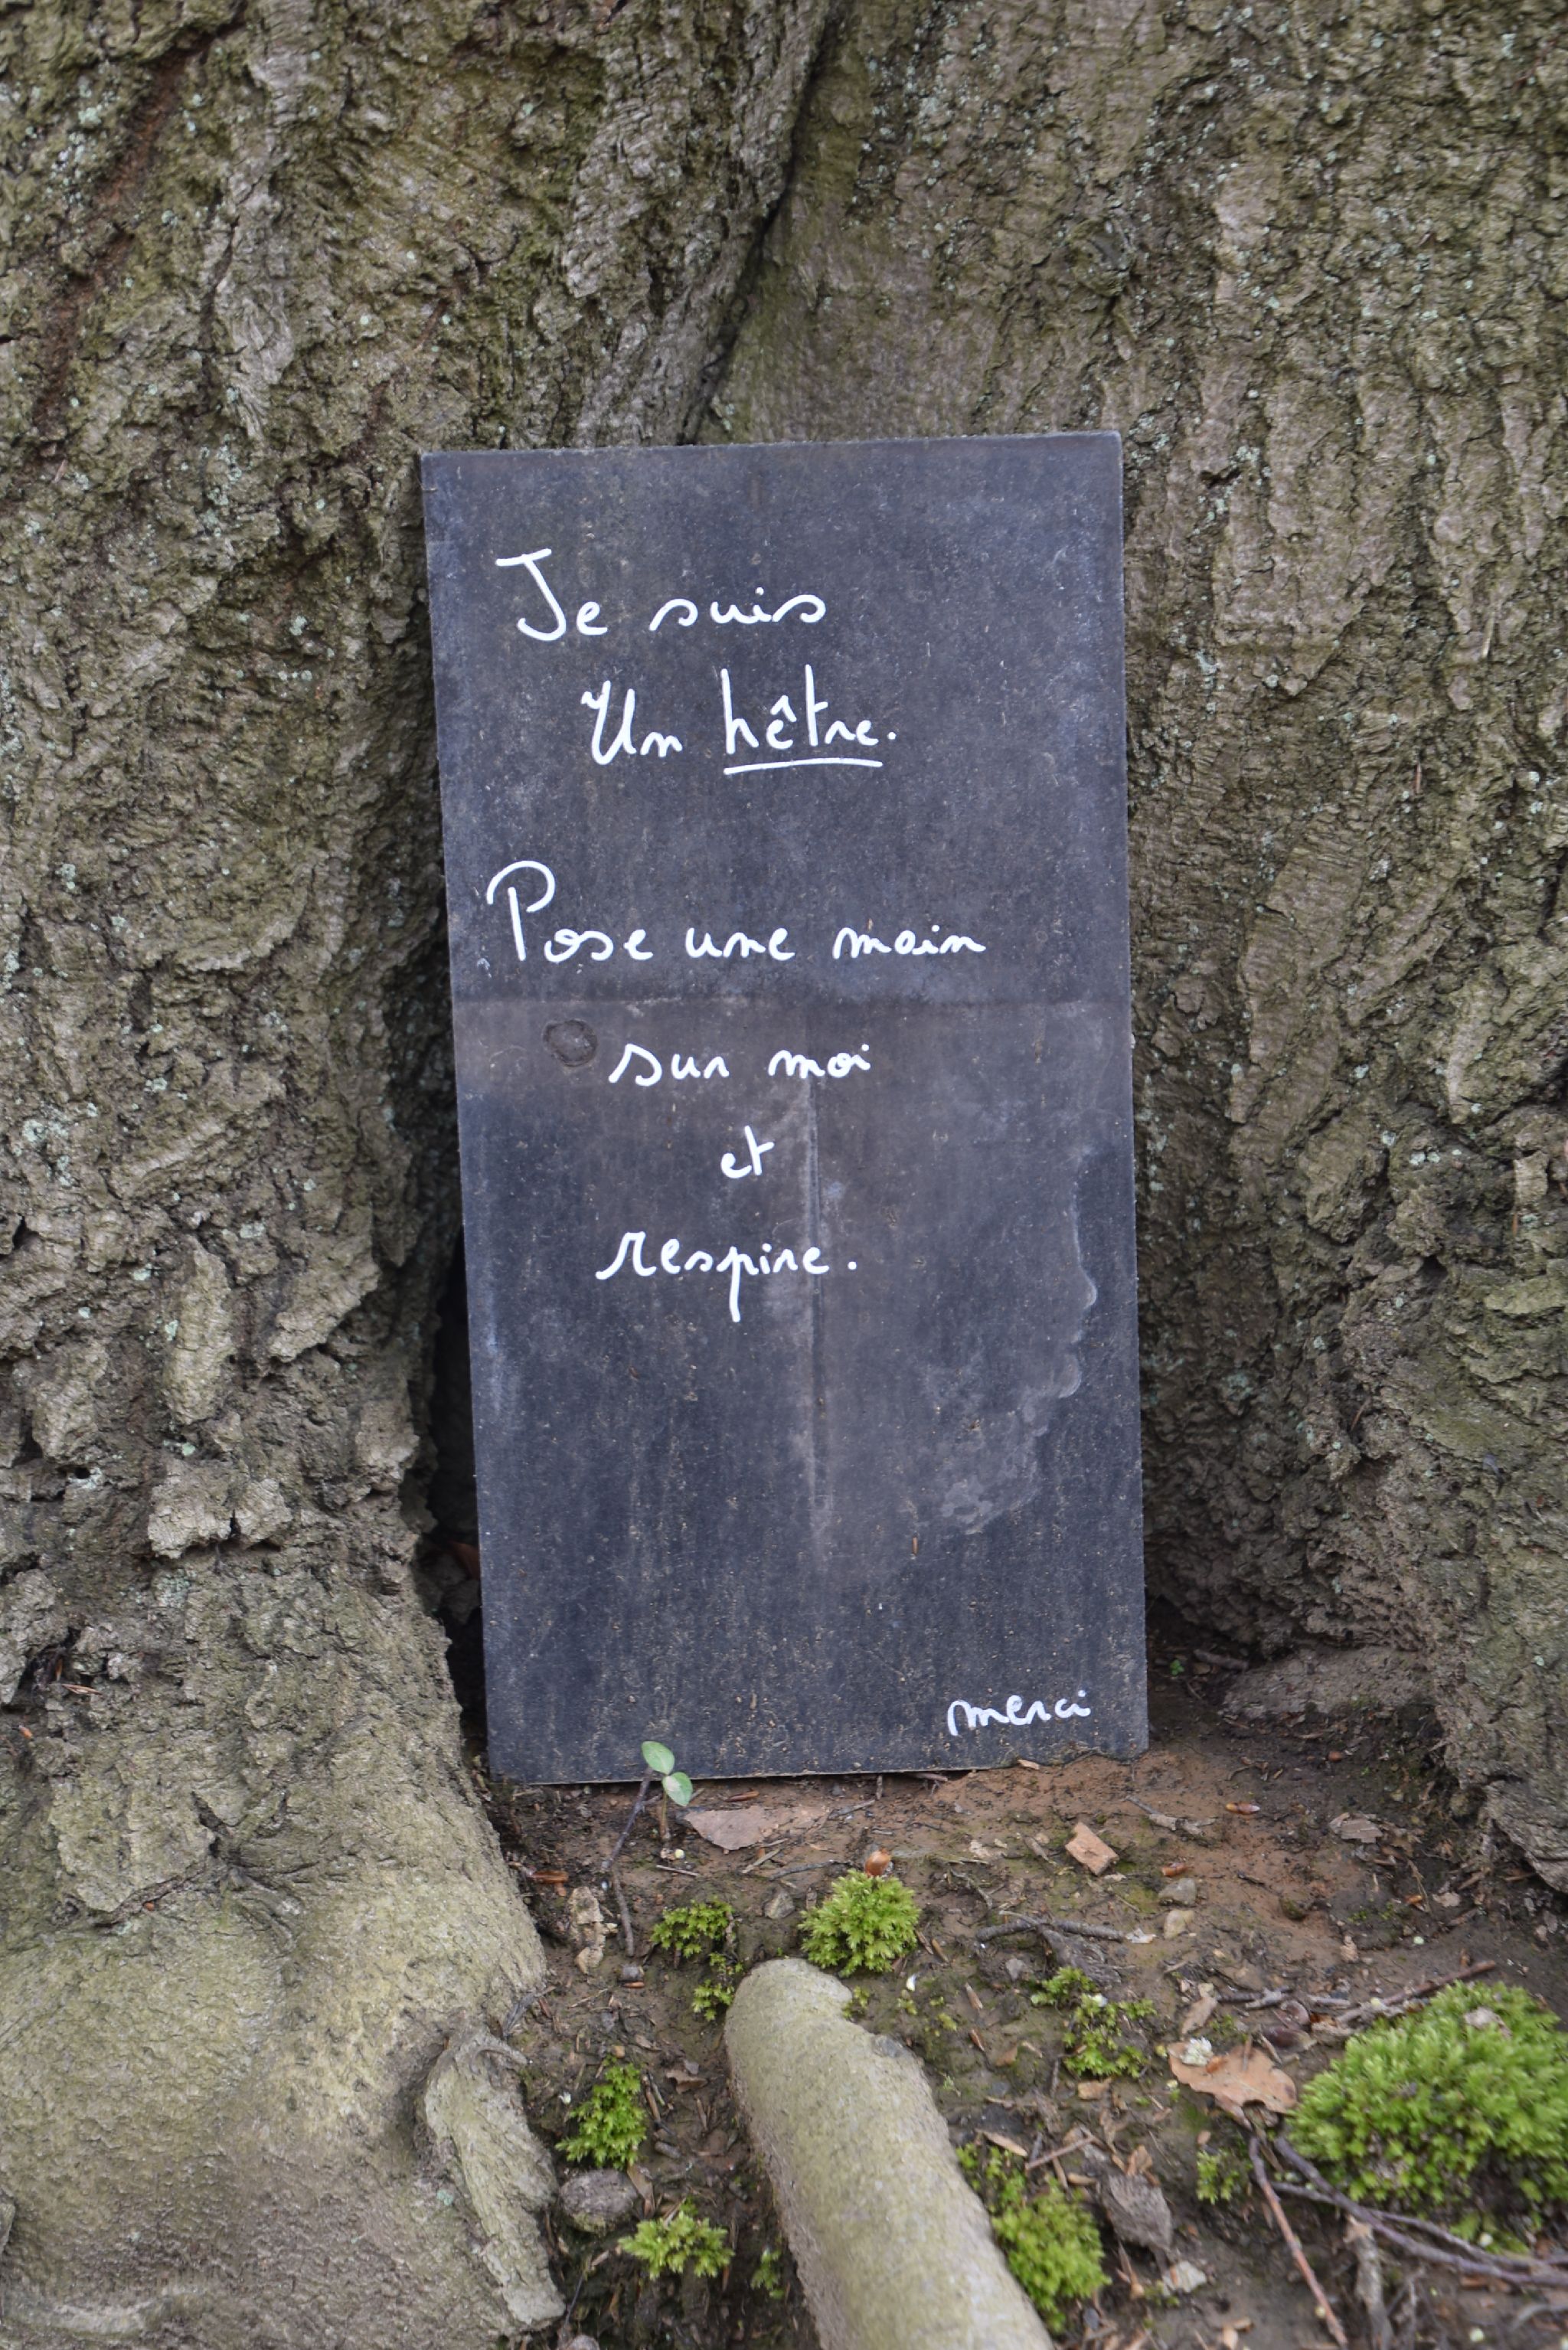 Je suis
Un hêtre.
Pose une main
sur moi
et
respire.
merci